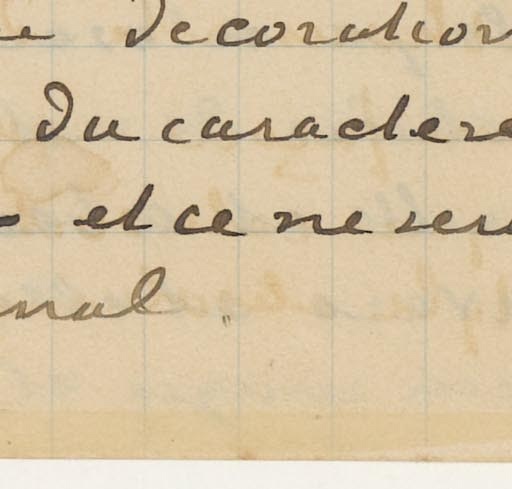 decoration
du caractere
et ce ne ser
nal.